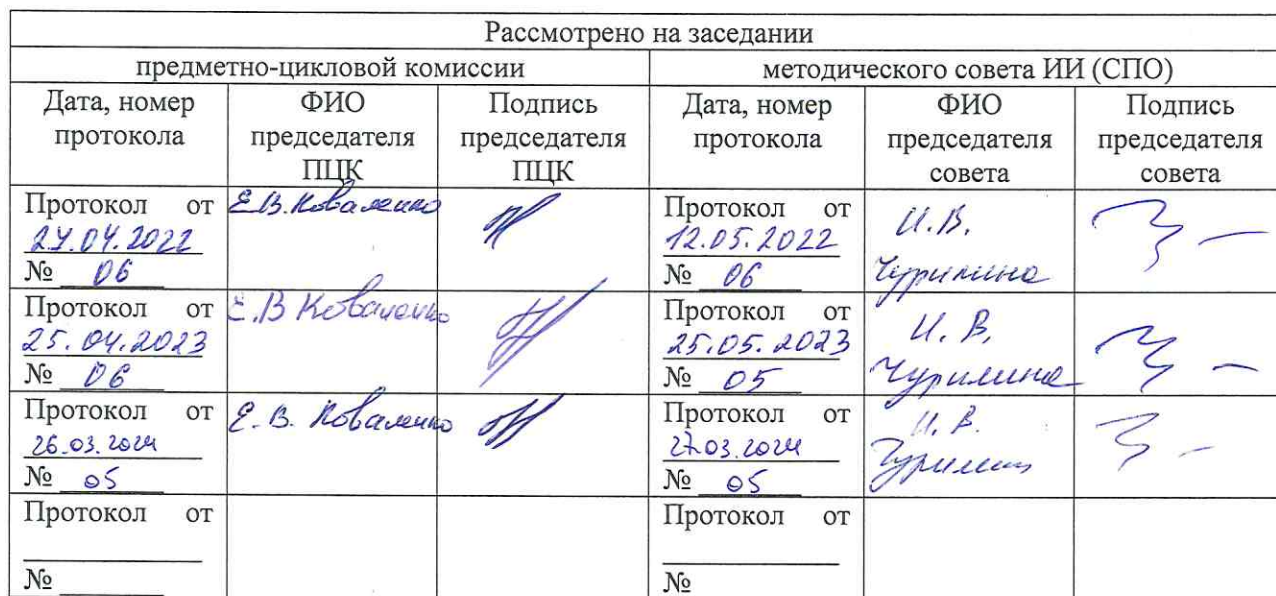 Рассмотрено на заседании
предметно-цикловой комиссии
методического совета ИИ (СПО)
Дата, номер
протокола
ФИО
председателя
ПЦК
Подпись
председателя
ПЦК
Дата, номер
протокола
ФИО
председателя
совета
Подпись
председателя
совета
Протокол от
27.04.2022
№ 06
Е.В. Коваленко
Протокол от
12.05.2022
№ 06
И.В.
Чурилина
Протокол от
25.04.2023
№ 06
Е.В Коваленко
Протокол от
25.05.2023
№ 05
И. В.
Чурилина
Протокол от
26.03.2024
№ 05
Е. В. Коваленко
Протокол от
27.03.2024
№ 05
И. В.
Чурилин
Протокол от
№
Протокол от
№